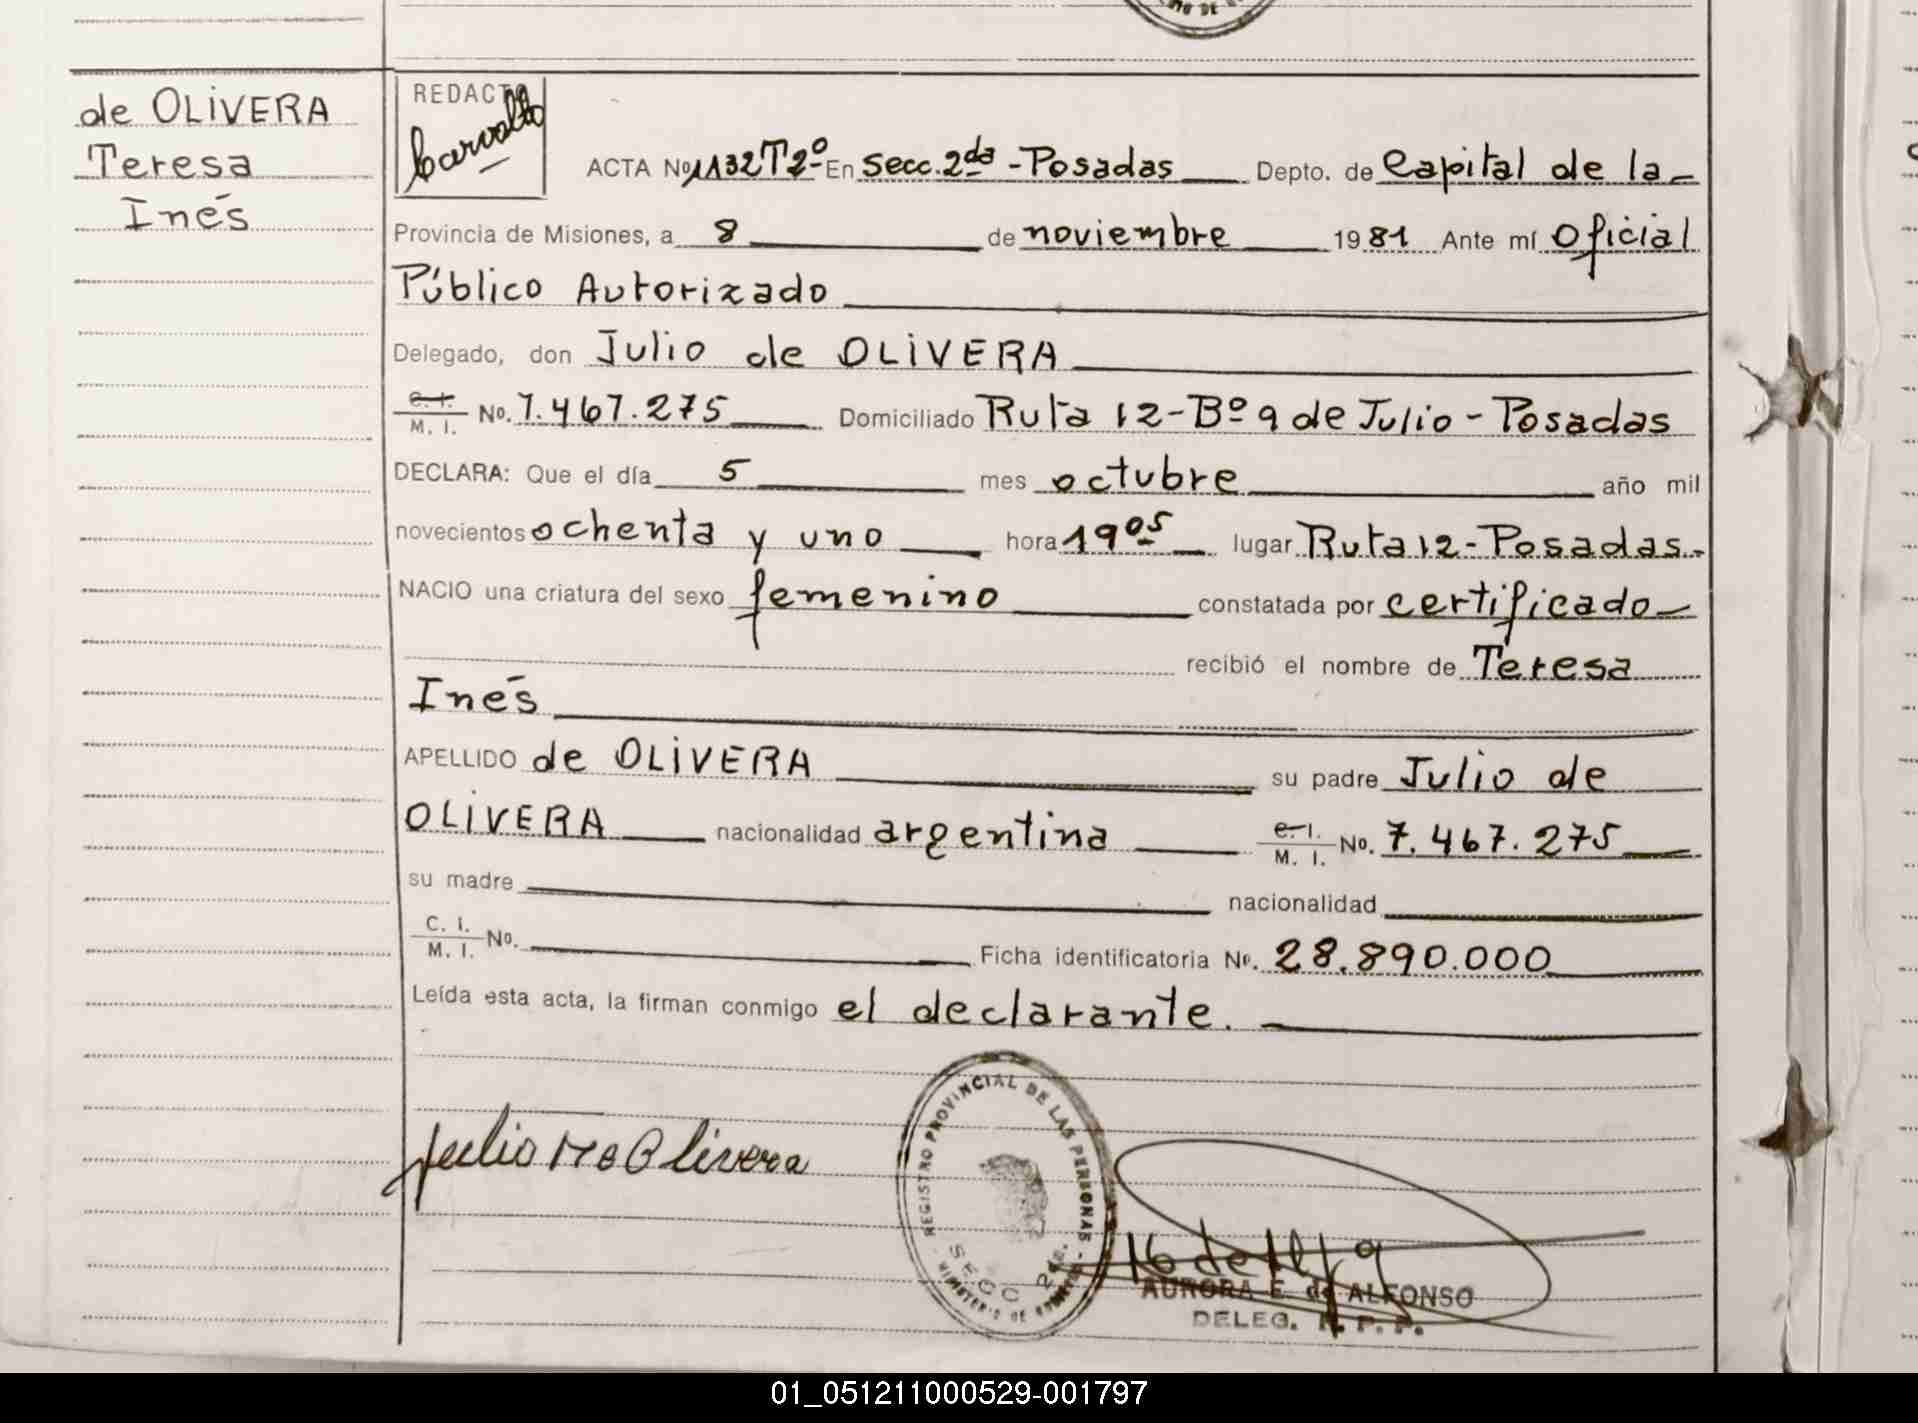 de OLIVERA
Teresa
Inés
REDACTO
Carvallo
ACTA No 1132 T2º En Secc. 2da - Posadas Depto. de Capital de la
Provincia de Misiones, a 8 de noviembre 1981 Ante mí Oficial
Público Autorizado
Delegado, don Julio de OLIVERA
C. I. / M. I. No. 7.467.275 Domiciliado Ruta 12 - Bº 9 de Julio - Posadas
DECLARA: Que el día 5 mes octubre año mil
novecientos ochenta y uno hora 19 05 lugar Ruta 12 - Posadas.
NACIO una criatura del sexo femenino constatada por certificado
recibió el nombre de Teresa
Inés
APELLIDO de OLIVERA su padre Julio de
OLIVERA nacionalidad argentina C. I. / M. I. No. 7.467.275
su madre nacionalidad
C. I. / M. I. No. Ficha identificatoria No. 28.890.000
Leída esta acta, la firman conmigo el declarante.
Julio de Olivera
REGISTRO PROVINCIAL DE LAS PERSONAS
SECC. 2da.
MINISTERIO DE GOBIERNO
AURORA E. de ALFONSO
DELEG. R. P. P.
01_051211000529-001797